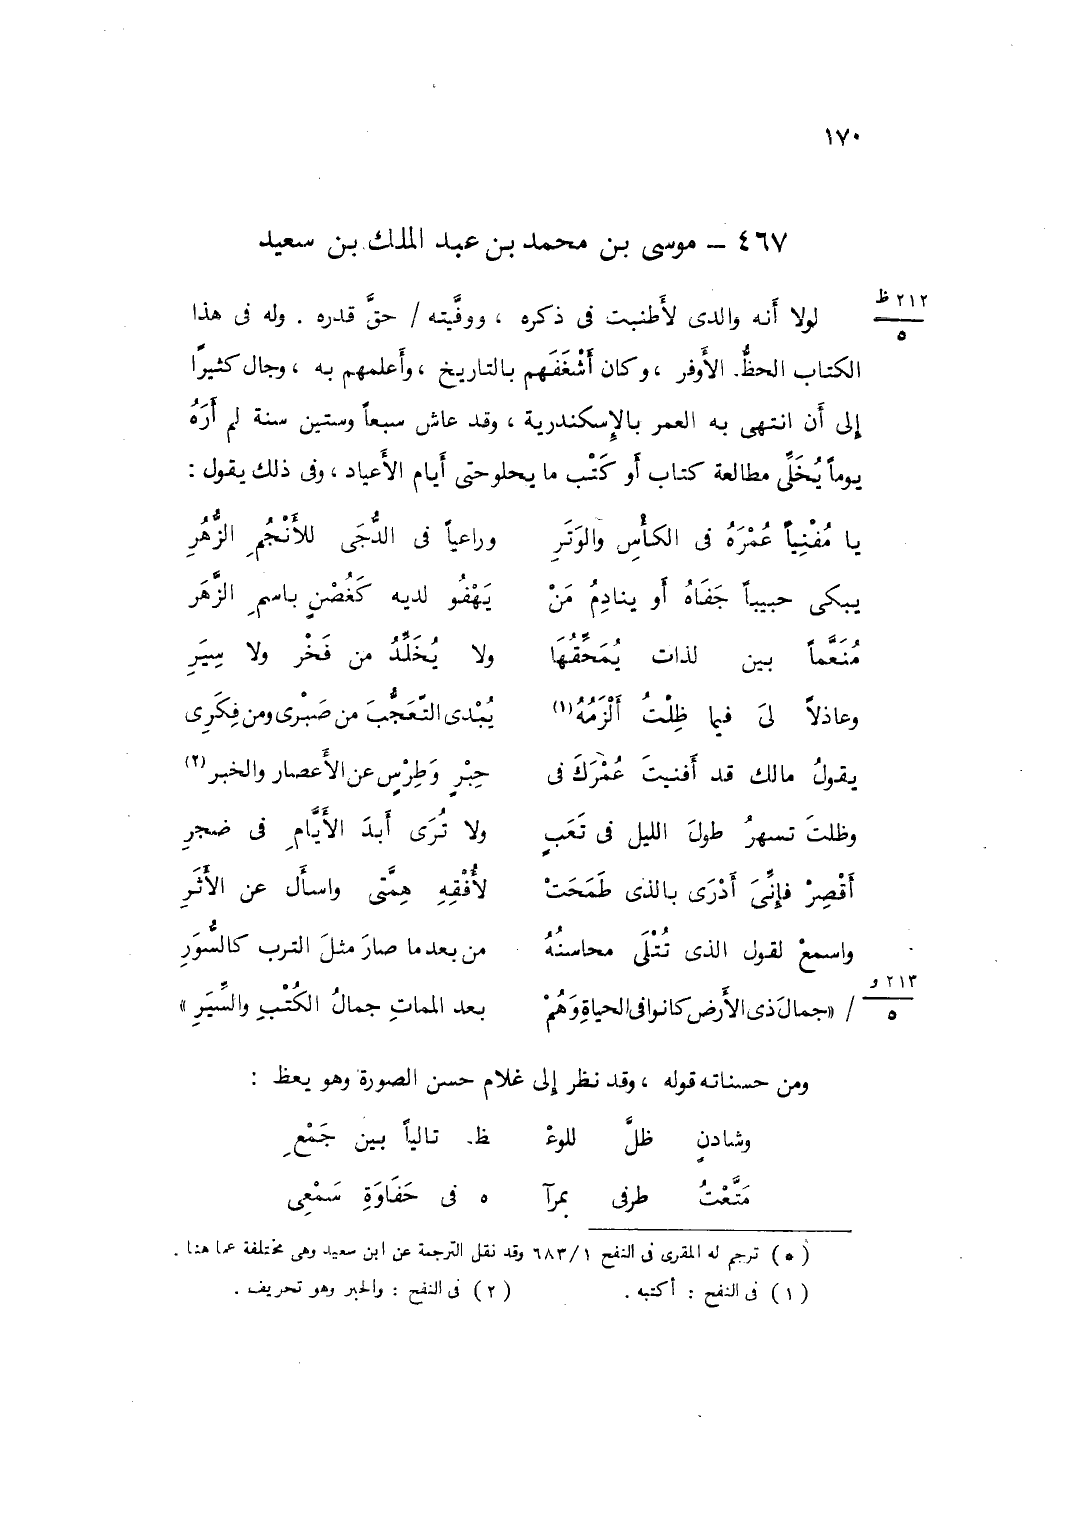 ١٧٠
٤٦٧ – موسى بن محمد بن عبد الملك بن سعيد
٢١٢ ظ
٥
لولا أَنه والدى لأَطنبت فى ذكره ، ووفَّيته / حقَّ قدره . وله فى هذا
الكتاب الحظُّ. الأَوفر ، وكان أَشْغَفَهم بالتاريخ ، وأَعلمهم به ، وجال كثيرًا
إلى أَن انتهى به العمر بالإسكندرية ، وقد عاش سبعاً وستين سنة لم أَرَهُ
يوماً يُخَلِّى مطالعة كتاب أَو كَتْب ما يحلو حتى أَيام الأَعياد ، وفى ذلك يقول :
يا مُفْنِياً عُمْرَهُ فى الكأْسِ والوَتَرِ    وراعياً فى الدُّجَى للأَنْجُمِ الزُّهُرِ
يبكى حبيباً جَفَاهُ أَو ينادِمُ مَنْ    يَهْفُو لديه كَغُصْنٍ باسمِ الزَّهَر
مُنَعَّماً بين لذات يُمَحِّقُهَا    ولا يُخَلِّدُ من فَخْر ولا سِيَرِ
وعاذلاً لىَ فيما ظِلْتُ أَلْزَمُهُ(١)    يُبْدى التَّعَجُّبَ من صَبْرى ومن فِكَرِى
يقولُ مالك قد أَفنيتَ عُمْرَكَ فى    حِبْرٍ وَطِرْسٍ عن الأَعصار والخبر(٢)
وظلتَ تسهرُ طولَ الليل فى تَعَبٍ    ولا تُرَى أَبدَ الأَيَّامِ فى ضجرِ
أَقْصِرْ فإِنِّىَ أَدْرَى بالذى طَمَحَتْ    لأُفْقِهِ هِمَّتى واسأَل عن الأَثَرِ
واسمعْ لقول الذى تُتْلَى محاسنُهُ    من بعد ما صارَ مثلَ الترب كالسُّوَرِ
٢١٣ و
٥
/ «جمالَ ذى الأَرض كانوا فى الحياةِ وَهُمْ    بعد المماتِ جمالُ الكُتْبِ والسِّيَرِ »
ومن حسناته قوله ، وقد نظر إلى غلام حسن الصورة وهو يعظ :
وشادنٍ ظلَّ للوعْ    ظ. تالياً بين جَمْعِ
مَتَّعْتُ طرفى بمرآ    ه فى حَفَاوَةِ سَمْعِى
(*) ترجم له المقرى فى النفح ١/٦٨٣ وقد نقل الترجمة عن ابن سعيد وهى مختلفة عما هنا .
(١) فى النفح : أكتبه .    (٢) فى النفح : والحبر وهو تحريف .